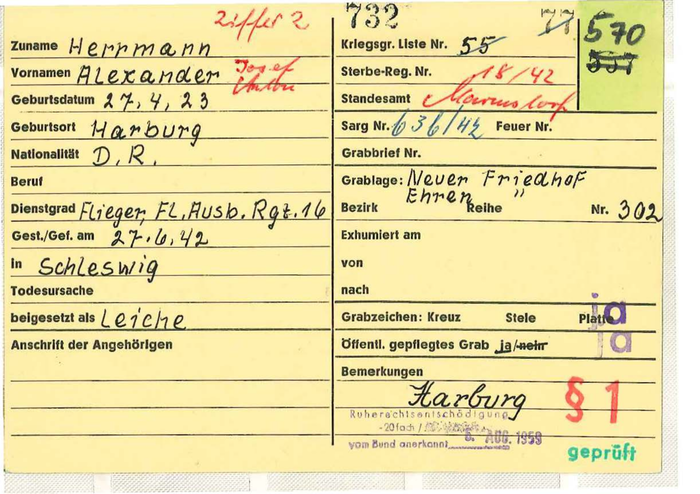 Ziffer 2
732
77
570
557
Zuname Herrmann
Vornamen Alexander Josef Anton
Geburtsdatum 27.4.23
Geburtsort Harburg
Nationalität D.R.
Beruf
Dienstgrad Flieger, Fl. Ausb. Rgt. 16
Gest./Gef. am 27.6.42
in Schleswig
Todesursache
beigesetzt als Leiche
Anschrift der Angehörigen
Kriegsgr. Liste Nr. 55
Sterbe-Reg. Nr. 18/42
Standesamt Marmstorf
Sarg Nr. 636/42 Feuer Nr.
Grabbrief Nr.
Grablage: Neuer Friedhof
Ehren "
Bezirk Reihe Nr. 302
Exhumiert am
von
nach
Grabzeichen: Kreuz Stele Platte ja
Öffentl. gepflegtes Grab ja/nein ja
Bemerkungen
Harburg § 1
Ruherechtsentschädigung
-20fach /
vom Bund anerkannt 6. AUG. 1959
geprüft